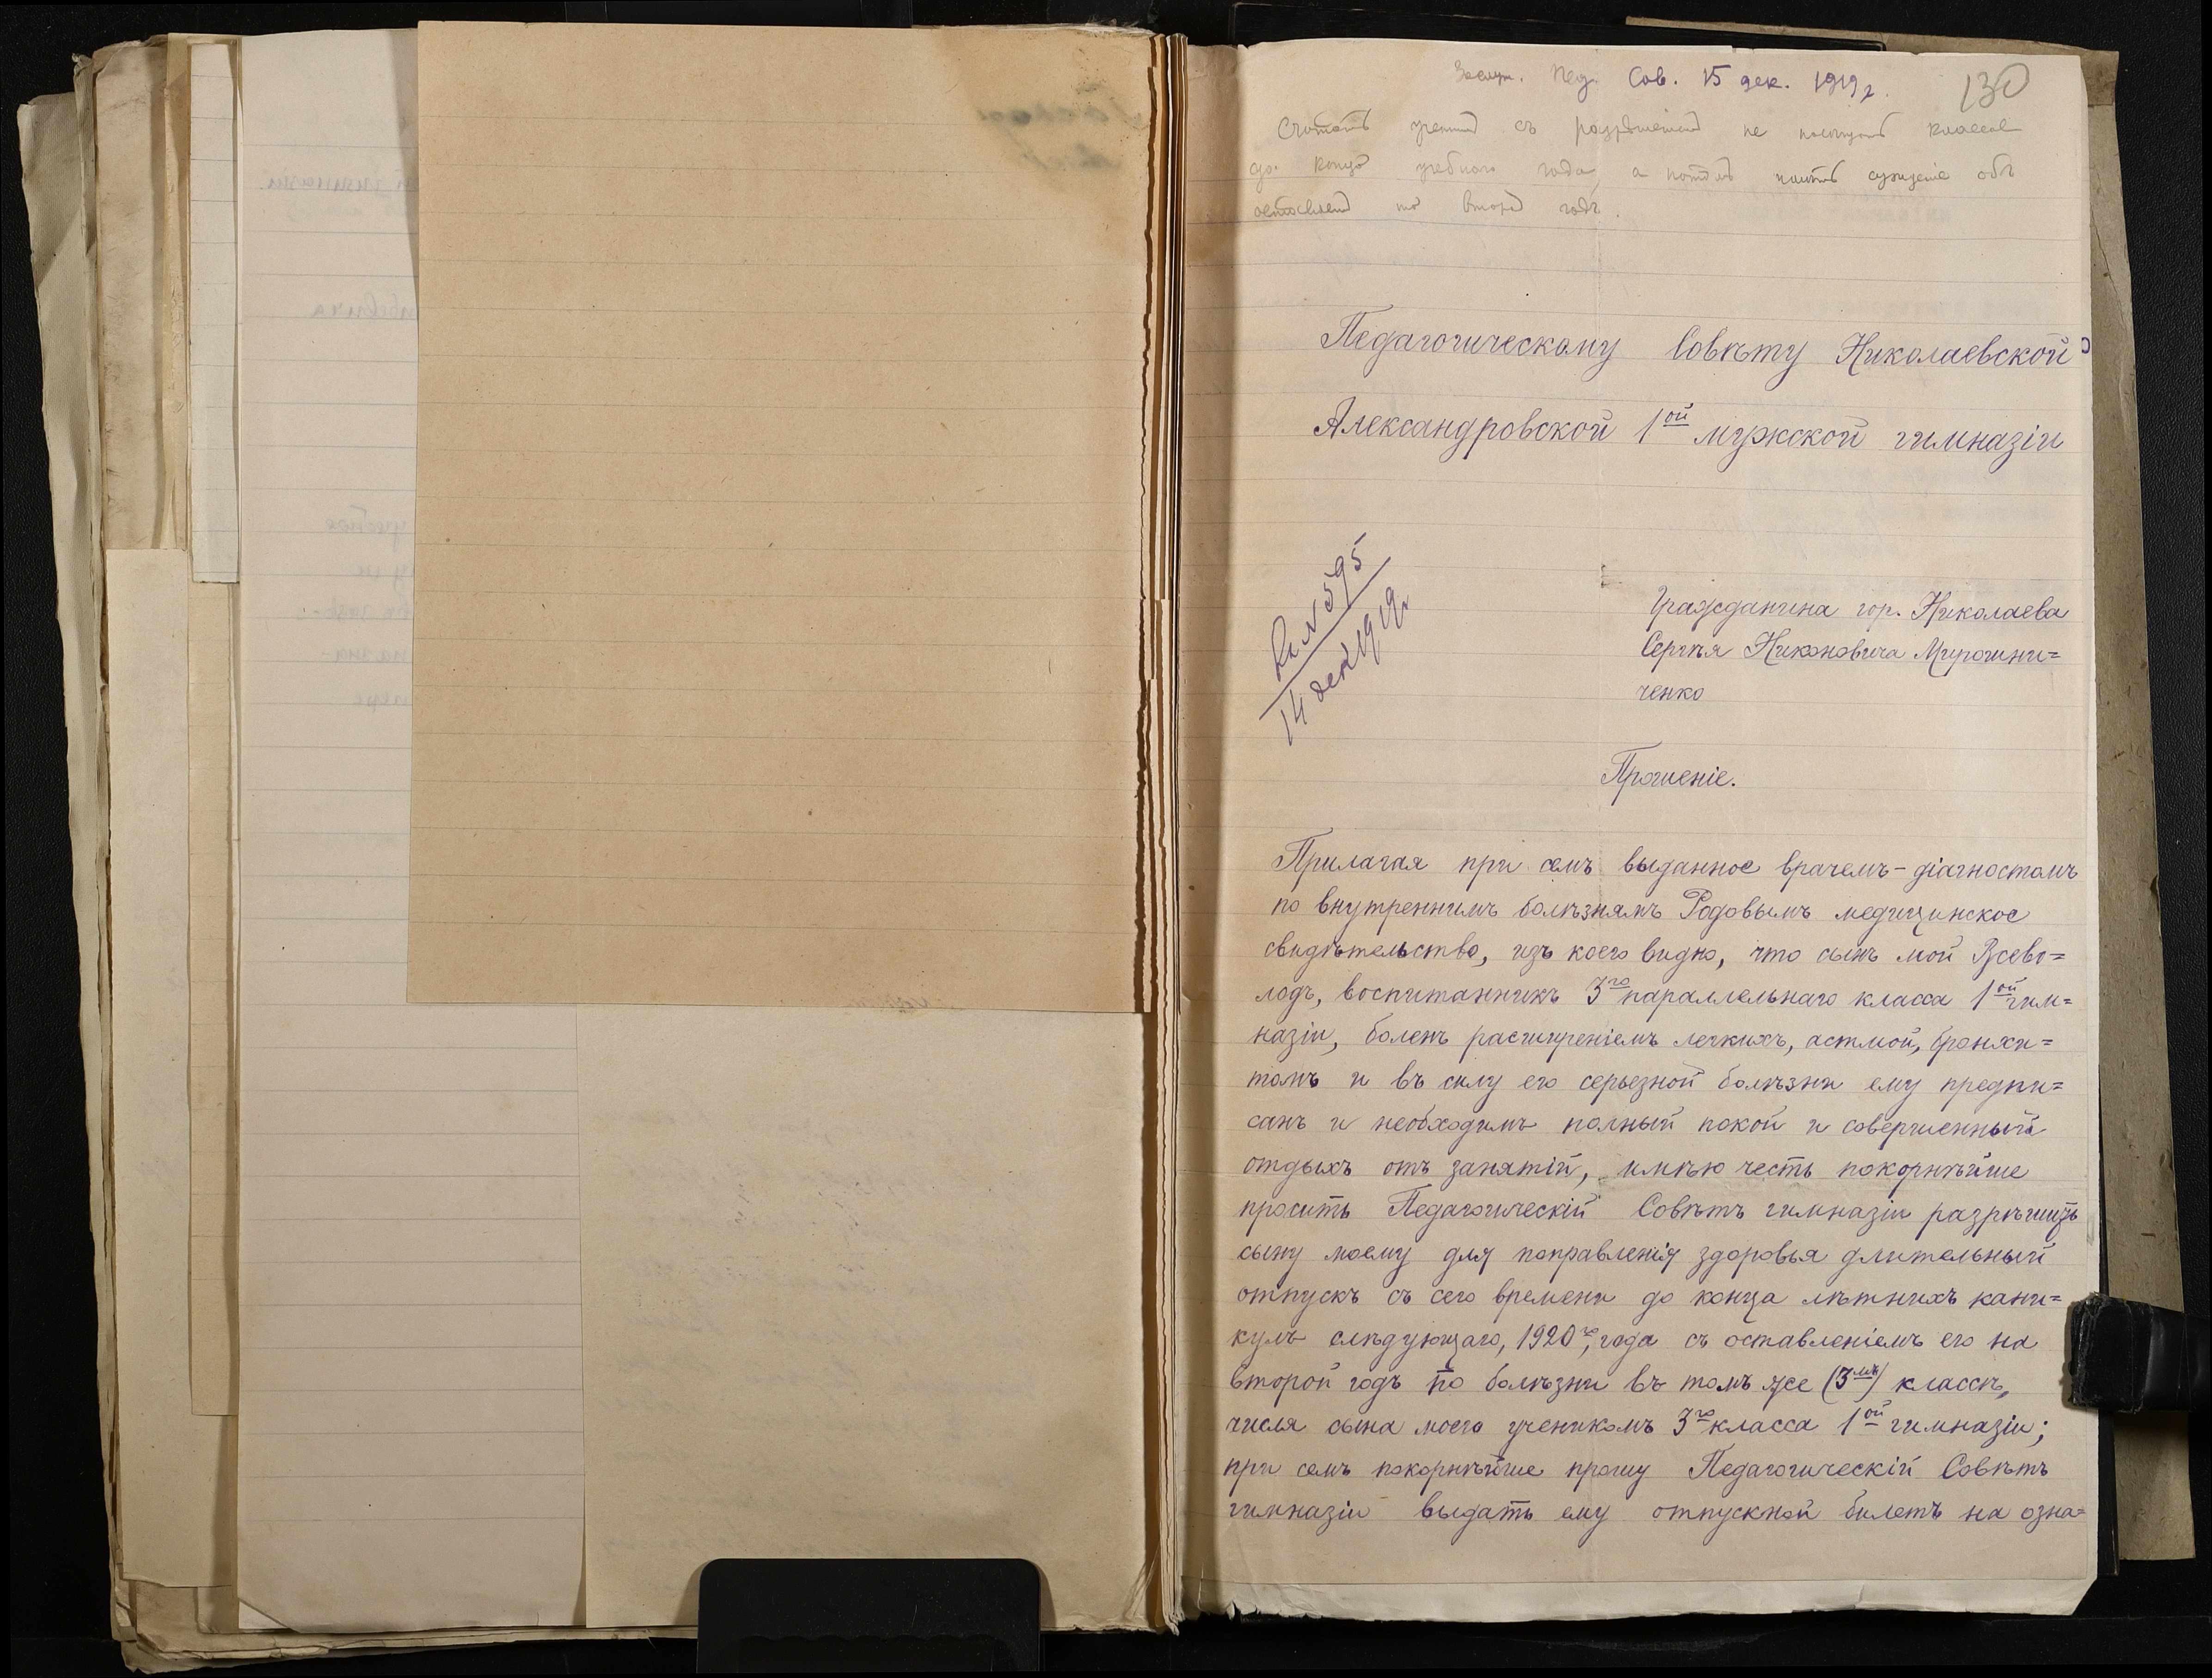 Пед. Сов. 15 дек. 1919 г.
130
Считать съ не классов
до конца учебного года, а потомъ имѣть сужденіе объ
на второй годъ.
Педагогическому Совѣту Николаевской
Александровской 1ой мужской гимназіи
Вх. № 595
14 дек 1919 г.
Гражданина гор. Николаева
Сергѣя Никоновича Мирошни=
ченко
Прошеніе.
Прилагая при семъ выданное врачемъ-діагностомъ
по внутреннимъ болѣзнямъ Родовымъ медицинское
свидѣтельство, изъ коего видно, что сынъ мой Всево=
лодъ, воспитанникъ 3го параллельнаго класса 1ой гим=
назіи, боленъ расширеніемъ легкихъ, астмой, бронхи=
томъ и въ силу его серьезной болѣзни ему предпи=
санъ и необходимъ полный покой и совершенный
отдыхъ отъ занятій, имѣю честь покорнѣйше
просить Педагогическій Совѣтъ гимназіи разрѣшить
сыну моему для поправленія здоровья длительный
отпускъ съ сего времени до конца лѣтнихъ кани=
кулъ слѣдующаго, 1920го, года съ оставленіемъ его на
второй годъ по болѣзни въ томъ же (3мъ) классѣ,
числя сына моего ученикомъ 3го класса 1ой гимназіи;
при семъ покорнѣйше прошу Педагогическій Совѣтъ
гимназіи выдать ему отпускной билетъ на озна=